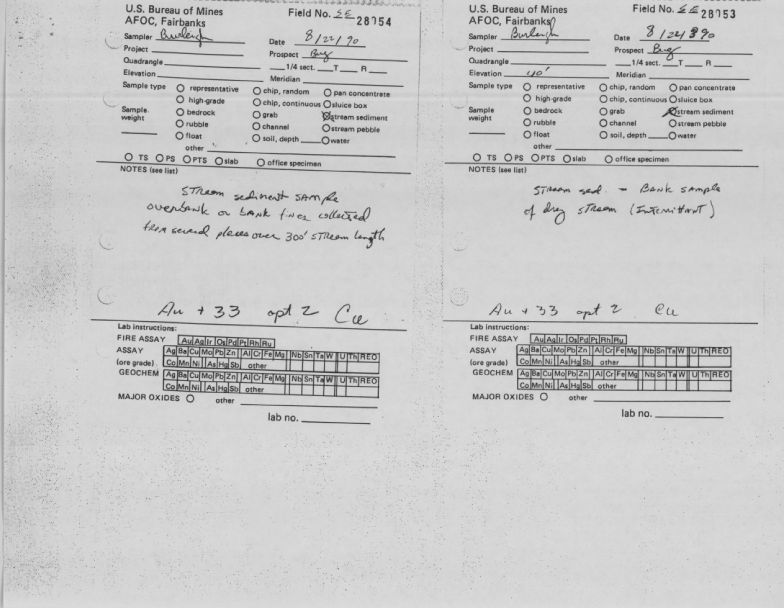 U.S. Bureau of Mines
AFOC, Fairbanks
Field No. SE 28154
Sampler Burleigh
Date 8/22/90
Project
Prospect Bug
Quadrangle
1/4 sect. T R
Elevation
Meridian
Sample type
representative
chip, random
pan concentrate
high-grade
chip, continuous
sluice box
Sample weight
bedrock
grab
stream sediment
rubble
channel
stream pebble
float
soil, depth
water
other
TS PS PTS slab office specimen
NOTES (see list)
Stream sediment sample
overbank or bank fines collected
from several places over 300' stream length
Au + 33 opt 2 Cu
Lab instructions:
FIRE ASSAY Au Ag Ir Os Pd Pt Rh Ru
ASSAY Ag Ba Cu Mo Pb Zn Al Cr Fe Mg Nb Sn Ta W U Th REO
(ore grade) Co Mn Ni As Hg Sb other
GEOCHEM Ag Ba Cu Mo Pb Zn Al Cr Fe Mg Nb Sn Ta W U Th REO
Co Mn Ni As Hg Sb other
MAJOR OXIDES other
lab no.
U.S. Bureau of Mines
AFOC, Fairbanks
Field No. SE 28153
Sampler Burleigh
Date 8/22/90
Project
Prospect Bug
Quadrangle
1/4 sect. T R
Elevation 40'
Meridian
Sample type
representative
chip, random
pan concentrate
high-grade
chip, continuous
sluice box
Sample weight
bedrock
grab
stream sediment
rubble
channel
stream pebble
float
soil, depth
water
other
TS PS PTS slab office specimen
NOTES (see list)
Stream sed. - Bank sample
of dry stream (Intermittant)
Au + 33 opt 2 Cu
Lab instructions:
FIRE ASSAY Au Ag Ir Os Pd Pt Rh Ru
ASSAY Ag Ba Cu Mo Pb Zn Al Cr Fe Mg Nb Sn Ta W U Th REO
(ore grade) Co Mn Ni As Hg Sb other
GEOCHEM Ag Ba Cu Mo Pb Zn Al Cr Fe Mg Nb Sn Ta W U Th REO
Co Mn Ni As Hg Sb other
MAJOR OXIDES other
lab no.